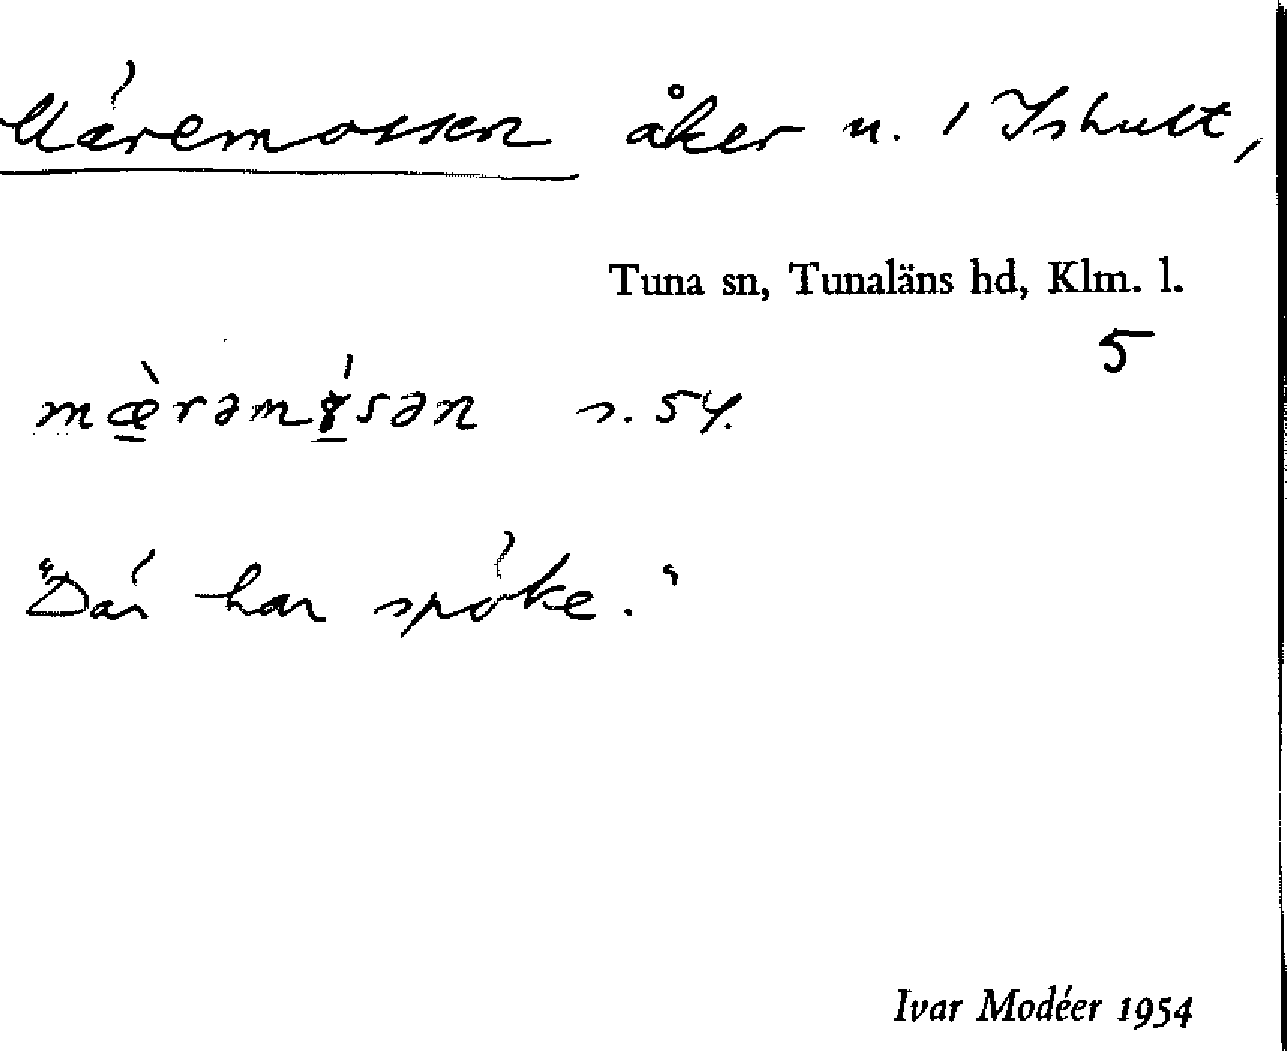 Märemossen åker u. / Ishult,
Tuna sn, Tunaläns hd, Klm. l.
5
s. 54.
"Där har spöke."
Ivar Modéer 1954